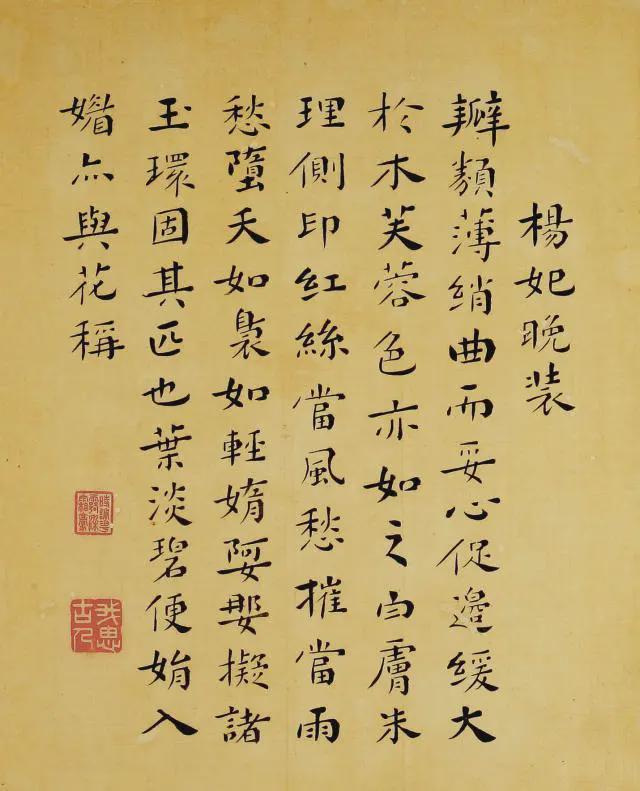 楊妃晚装
瓣類薄綃曲而妥心促邉緩大
於木芙蓉色亦如之白膚朱
理側印紅絲當風愁摧當雨
愁墮夭如裊如輕媠娿擬諸
玉環固其匹也葉淡碧便娟入
媚亦與花稱
我思古人